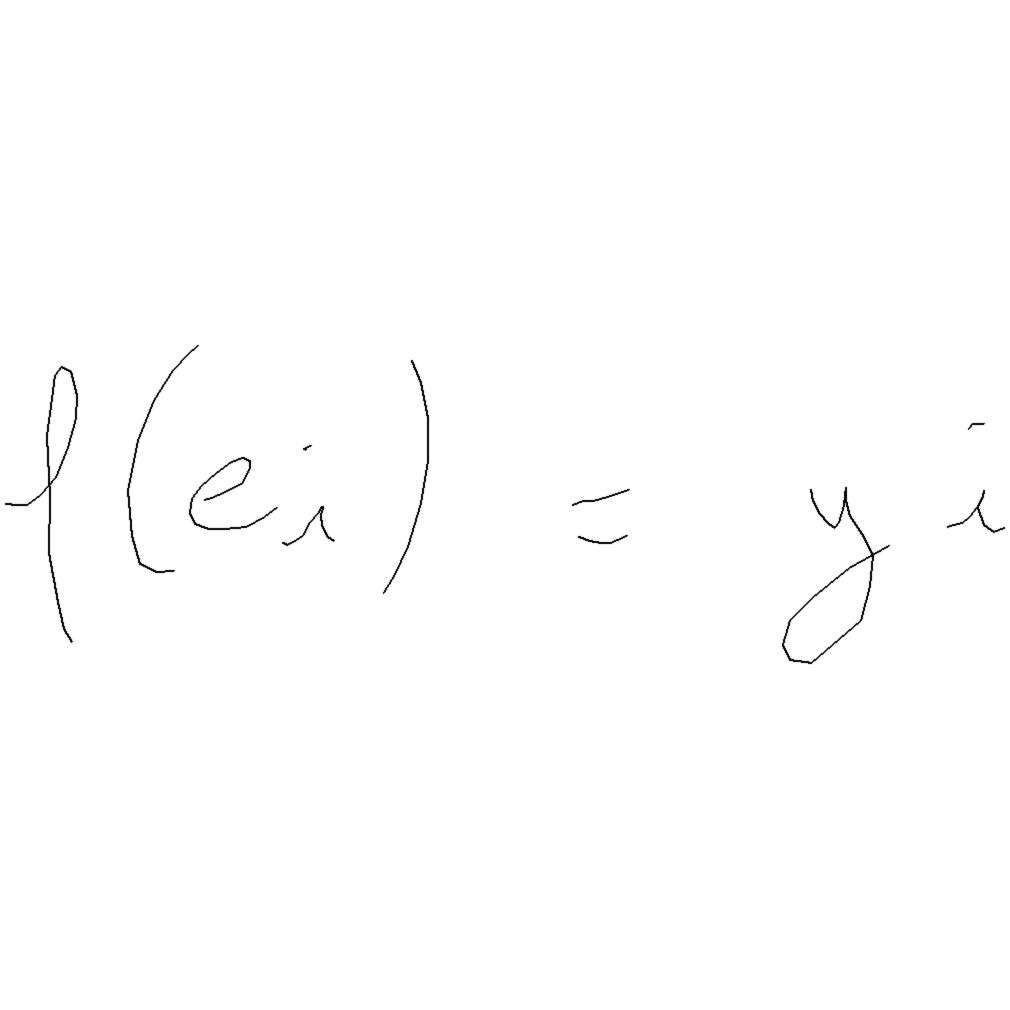 f(e_i) = y_i